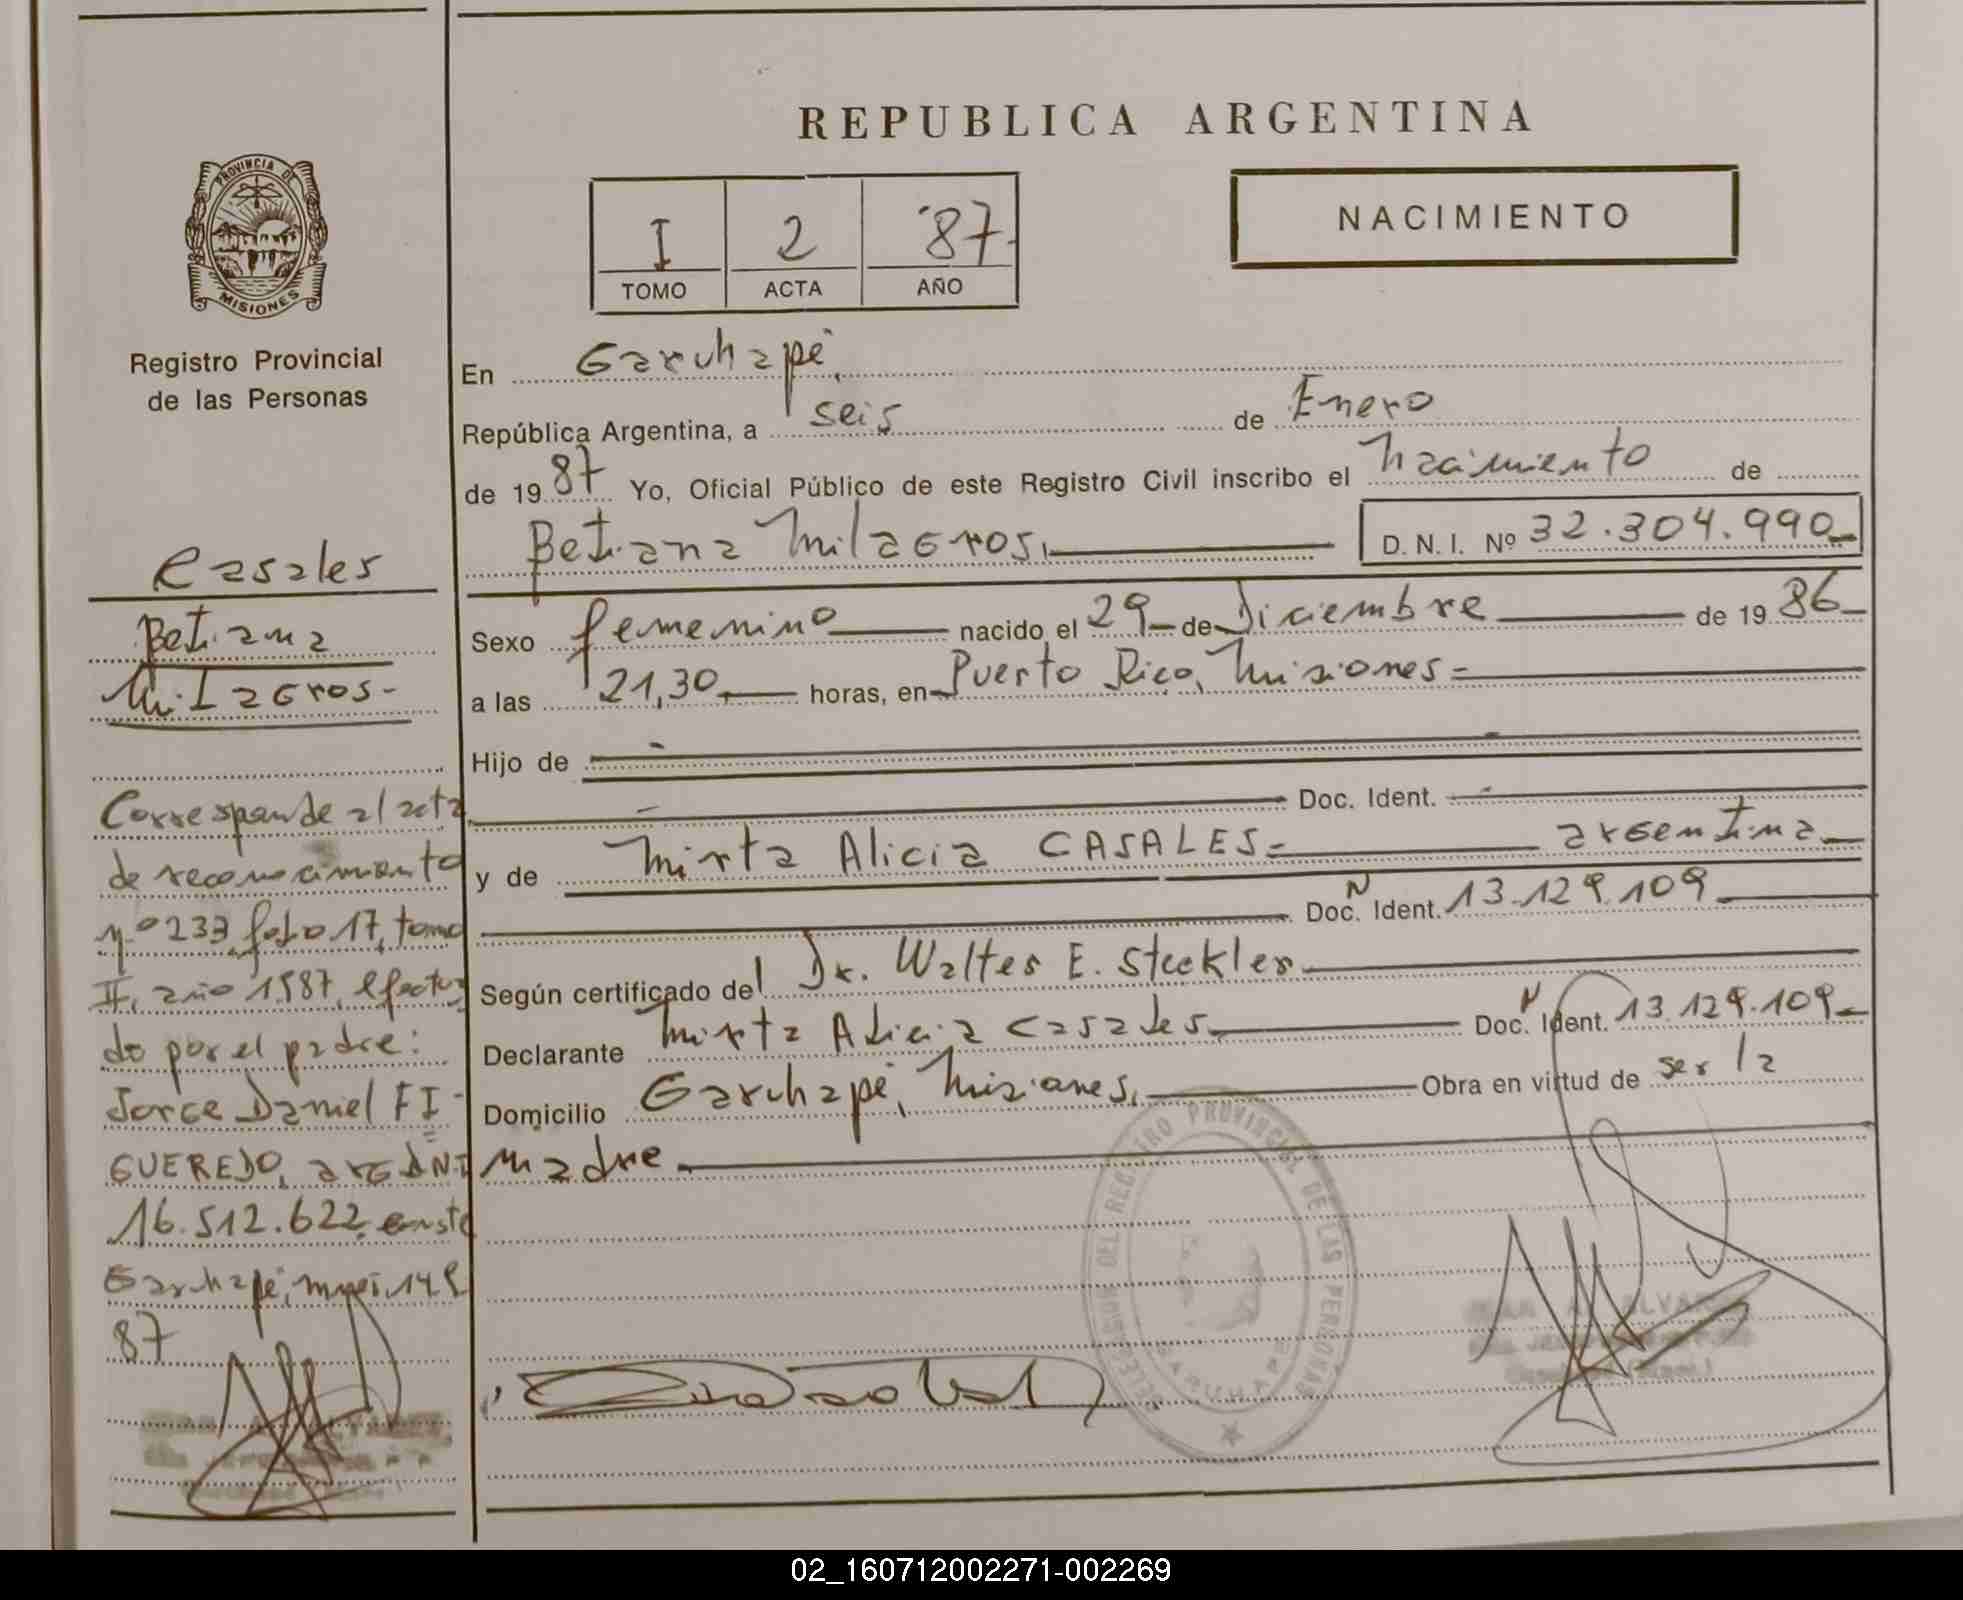 REPUBLICA ARGENTINA
PROVINCIA DE
MISIONES
Registro Provincial
de las Personas
I 2 '87-
TOMO ACTA AÑO
NACIMIENTO
En Garuhapé,
República Argentina, a seis de Enero
de 1987 Yo, Oficial Público de este Registro Civil inscribo el nacimiento de
Betiana Milagros,
D. N. I. Nº 32.304.990
Sexo femenino nacido el 29 de Diciembre de 1986
a las 21,30 horas, en Puerto Rico, Misiones
Hijo de
Doc. Ident.
y de Mirta Alicia CASALES argentina
Doc. Ident. N 13.129.109
Según certificado del Dr. Walter E. Steckler
Declarante Mirta Alicia Casales Doc. Ident. N 13.129.109
Domicilio Garuhapé, Misiones, Obra en virtud de ser la
madre
Casales
Betiana
Milagros-
Corresponde al acta
de reconocimiento
nº 233 folio 17, tomo
II, año 1987, efectua
do por el padre:
Jorge Daniel FI-
GUEREDO, arg DNI
16.512.622, conste
Garuhapé,
87
DELEGACION DEL REGISTRO PROVINCIAL DE LAS PERSONAS
GARUHAPE
02_160712002271-002269